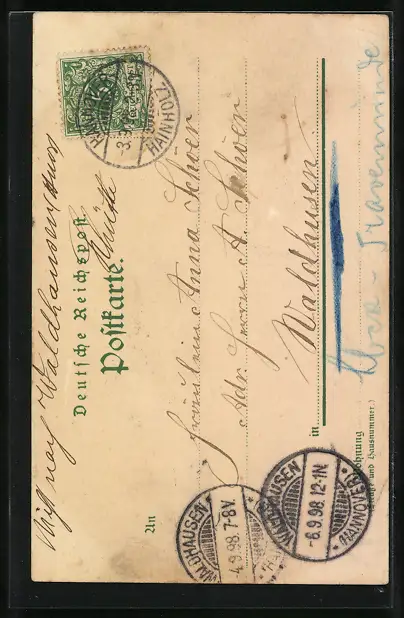 Deutsche Reichspost
Postkarte.
HAINHOLZ
An
Fräulein Anna Schoer
Adr. Herrn A. Schoer
in Waldhusen
Wohnung
(Straße und Hausnummer.)
Travemünde
WALDHAUSEN
4.9.98. 7-8V.
WALDHAUSEN
-6.9.98. 12-1N.
(HANNOVER)